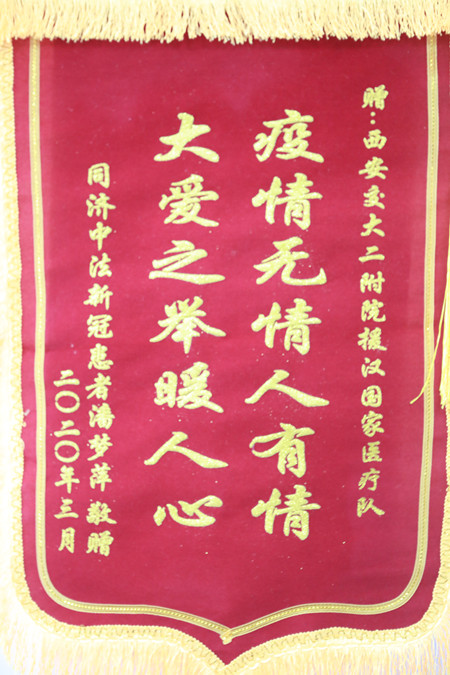 赠:西安交大二附院援汉国家医疗队
疫情无情人有情
大爱之举暖人心
同济中法新冠患者潘梦萍敬赠
二〇二〇年三月